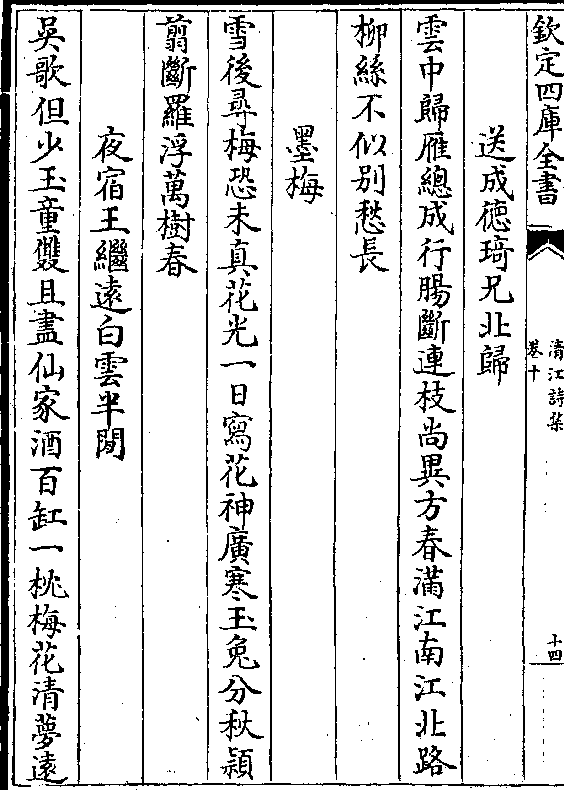 欽定四庫全書
清江詩集
卷十
十四
送成德琦兄北歸
雲中歸雁總成行腸斷連枝尚異方春滿江南江北路
柳絲不似别愁長
墨梅
雪後尋梅恐未真花光一日寫花神廣寒玉兔分秋穎
翦斷羅浮萬樹春
夜宿王繼遠白雲半閒
吳歌但少玉童雙且盡仙家酒百缸一枕梅花清夢遠